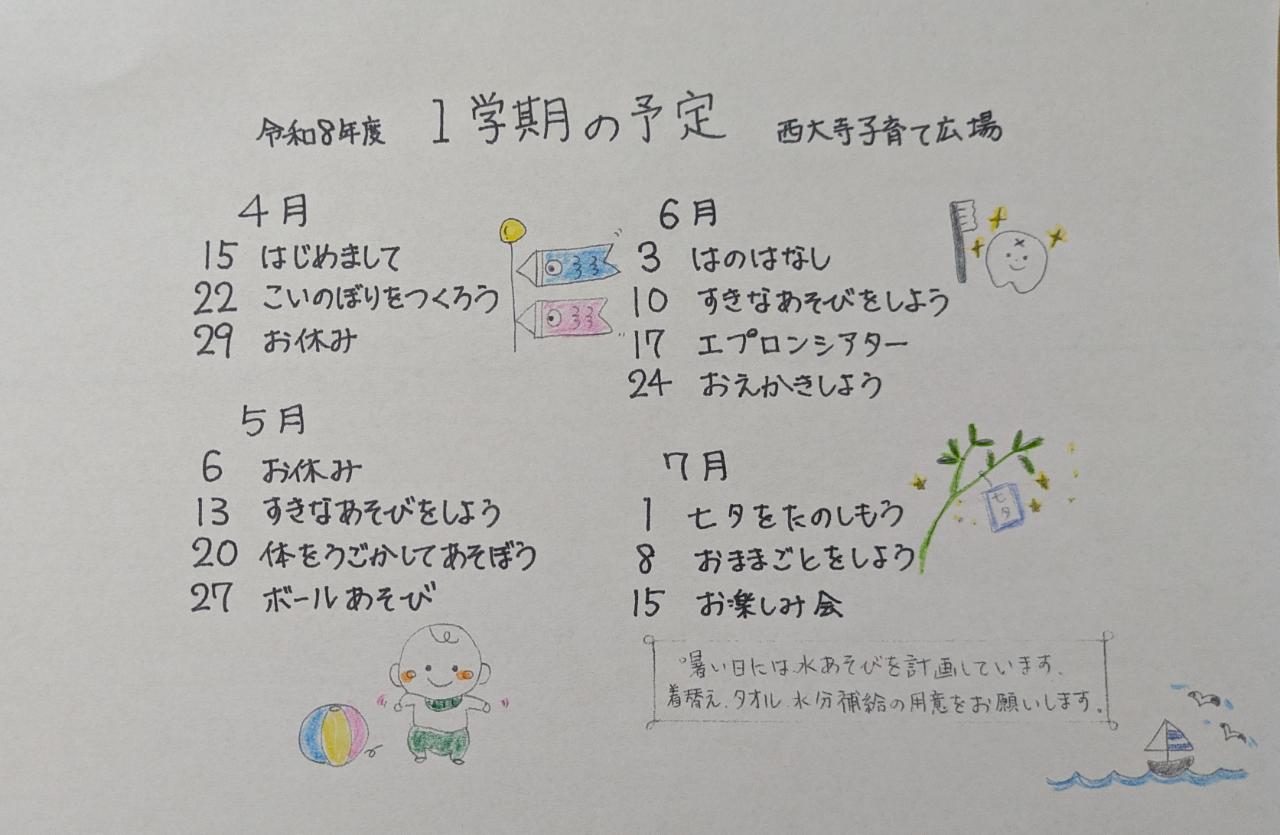 令和8年度 1学期の予定 西大寺子育て広場
4月
15 はじめまして
22 こいのぼりをつくろう
29 お休み
5月
6 お休み
13 すきなあそびをしよう
20 体をうごかしてあそぼう
27 ボールあそび
6月
3 はのはなし
10 すきなあそびをしよう
17 エプロンシアター
24 おえかきしよう
7月
1 七夕をたのしもう
8 おままごとをしよう
15 お楽しみ会
七夕
暑い日には水あそびを計画しています.
着替え.タオル.水分補給の用意をお願いします.